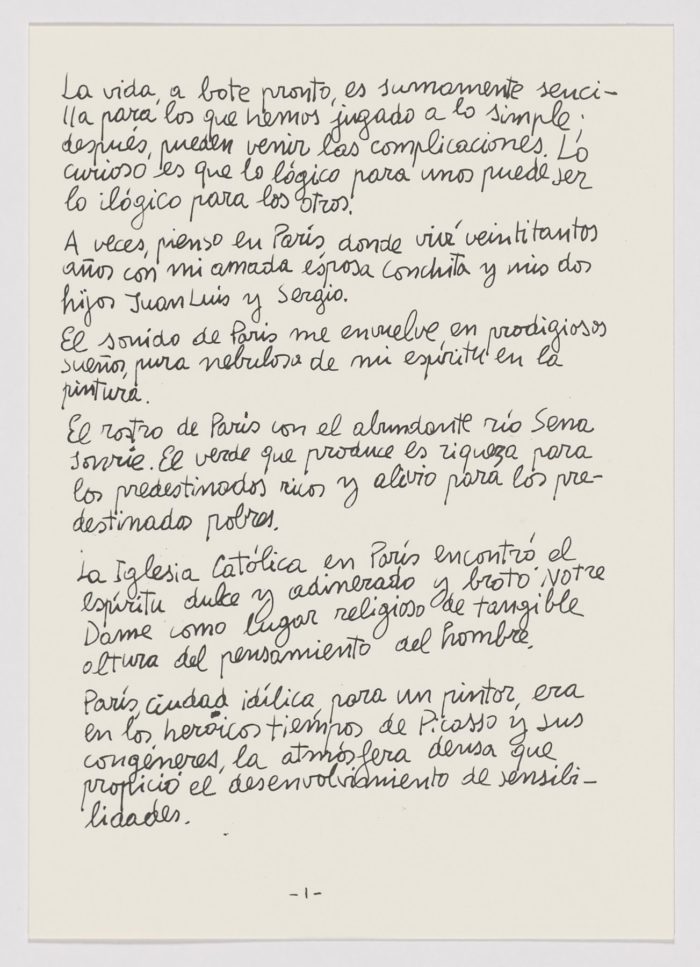 La vida, a bote pronto, es sumamente senci-
lla para los que hemos jugado a lo simple;
después, pueden venir las complicaciones. Lo
curioso es que lo lógico para unos puede ser
lo ilógico para los otros.
A veces, pienso en París donde viví veintitantos
años con mi amada esposa Conchita y mis dos
hijos Juan Luis y Sergio.
El sonido de París me envuelve, en prodigiosos
sueños, pura nebulosa de mi espíritu en la
pintura.
El rostro de París con el abundante río Sena
sonríe. El verde que produce es riqueza para
los predestinados ricos y alivio para los pre-
destinados pobres.
La Iglesia Católica en París encontró el
espíritu dulce y adinerado y brotó Notre
Dame como lugar religioso de tangible
altura del pensamiento del hombre.
París, ciudad idílica, para un pintor, era
en los heróicos tiempos de Picasso y sus
congéneres, la atmósfera densa que
propició el desenvolvimiento de sensibi-
lidades.
-1-